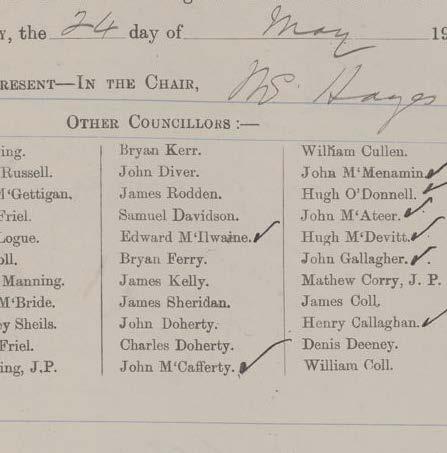 y, the 24 day of May 19
RESENT—IN THE CHAIR, Mr. Hayes
OTHER COUNCILLORS :—
ing. Bryan Kerr. William Cullen.
Russell. John Diver. John M'Menamin.
M'Gettigan. James Rodden. Hugh O'Donnell.
Friel. Samuel Davidson. John M'Ateer.
Logue. Edward M'Ilwaine. Hugh M'Devitt.
oll. Bryan Ferry. John Gallagher.
Manning. James Kelly. Mathew Corry, J. P.
M'Bride. James Sheridan. James Coll.
ey Sheils. John Doherty. Henry Callaghan.
Friel. Charles Doherty. Denis Deeney.
ing, J.P. John M'Cafferty. William Coll.